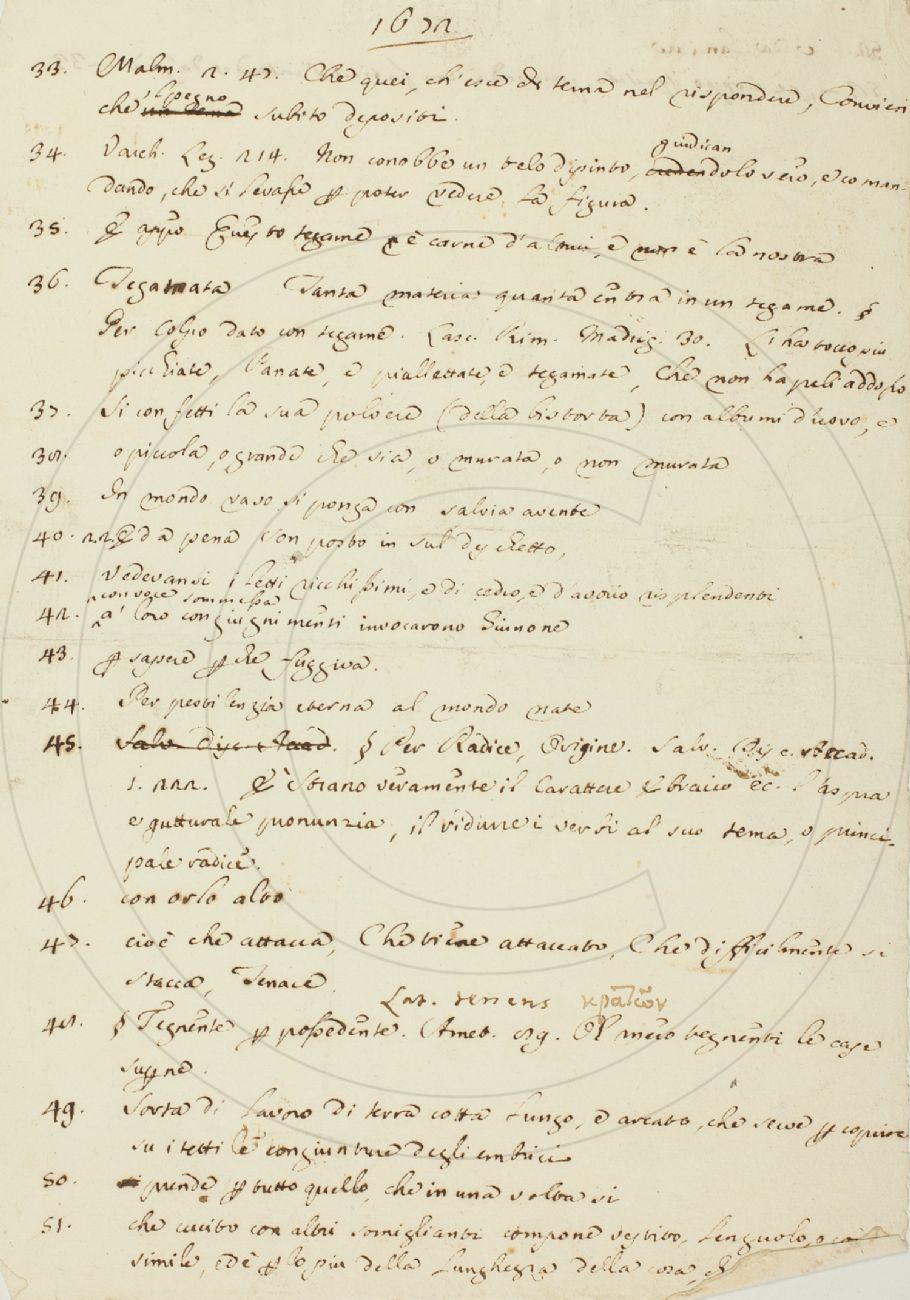 1672
33. Malm. 2. 47. Che quei, ch'esce di tema nel rispondere, Convien
che 'l pegno un pena subito depositi.
34. Varch. Lez. 214. Non conobbe un velo dipinto, giudicandolo vero, e coman-
dando, che si levasse per poter vedere la figura.
35. E appo Questo tegame è carne d'altrui, e non è la nostra
36. Tegamata Tanta materia quanta entra in un tegame. §
Per Colpo dato con tegame. Lasc. Rim. Madrig. 30. L'ha tocco più
picchiate, Panate, e piallettate, e tegamate, Che non ha peli addosso
37. Si confetti la sua polvere (della bistorta) con albumi d'uovo, e
38. o piccola, o grande che sia, o murata, o non murata
39. In mondo vaso si ponga con salvia avente
40. 22. Ed a pena son posto in sul deschetto,
41. Vedevansi i letti ricchissimi, e di cedro, e d'avorio risplendenti
con voce sommessa
42. a' loro congiugnimenti invocarono Giunone
43. per sapere perche fuggiva.
44. Per pestilenzia eterna al mondo nate
45. Salv. Disc. Accad. § Per Radice, Origine. Salv. Disc. Accad.
1. 222. E' strano veramente il Carattere Ebraico ec. l'aspra
e gutturale pronunzia, il ridurre i versi al suo tema, o princi-
pale radice.
46. con orlo alto
47. cioè che attacca, Che tiene attaccato, Che difficilmente si
stacca, Tenace.
Lat. tenens κρατῶν
48. § Tegnente per possedente. Amet. 89. Il mero tegnenti le case
superne.
49. Sorta di lavoro di terra cotta lungo, e arcato, che serve per coprire
su i tetti le congiunture degli embrici
50. prende per tutto quello, che in una volta si
51. che cucito con altri somiglianti compone vestito, lenzuolo, o
simile, ed è per lo più della lunghezza della cosa,